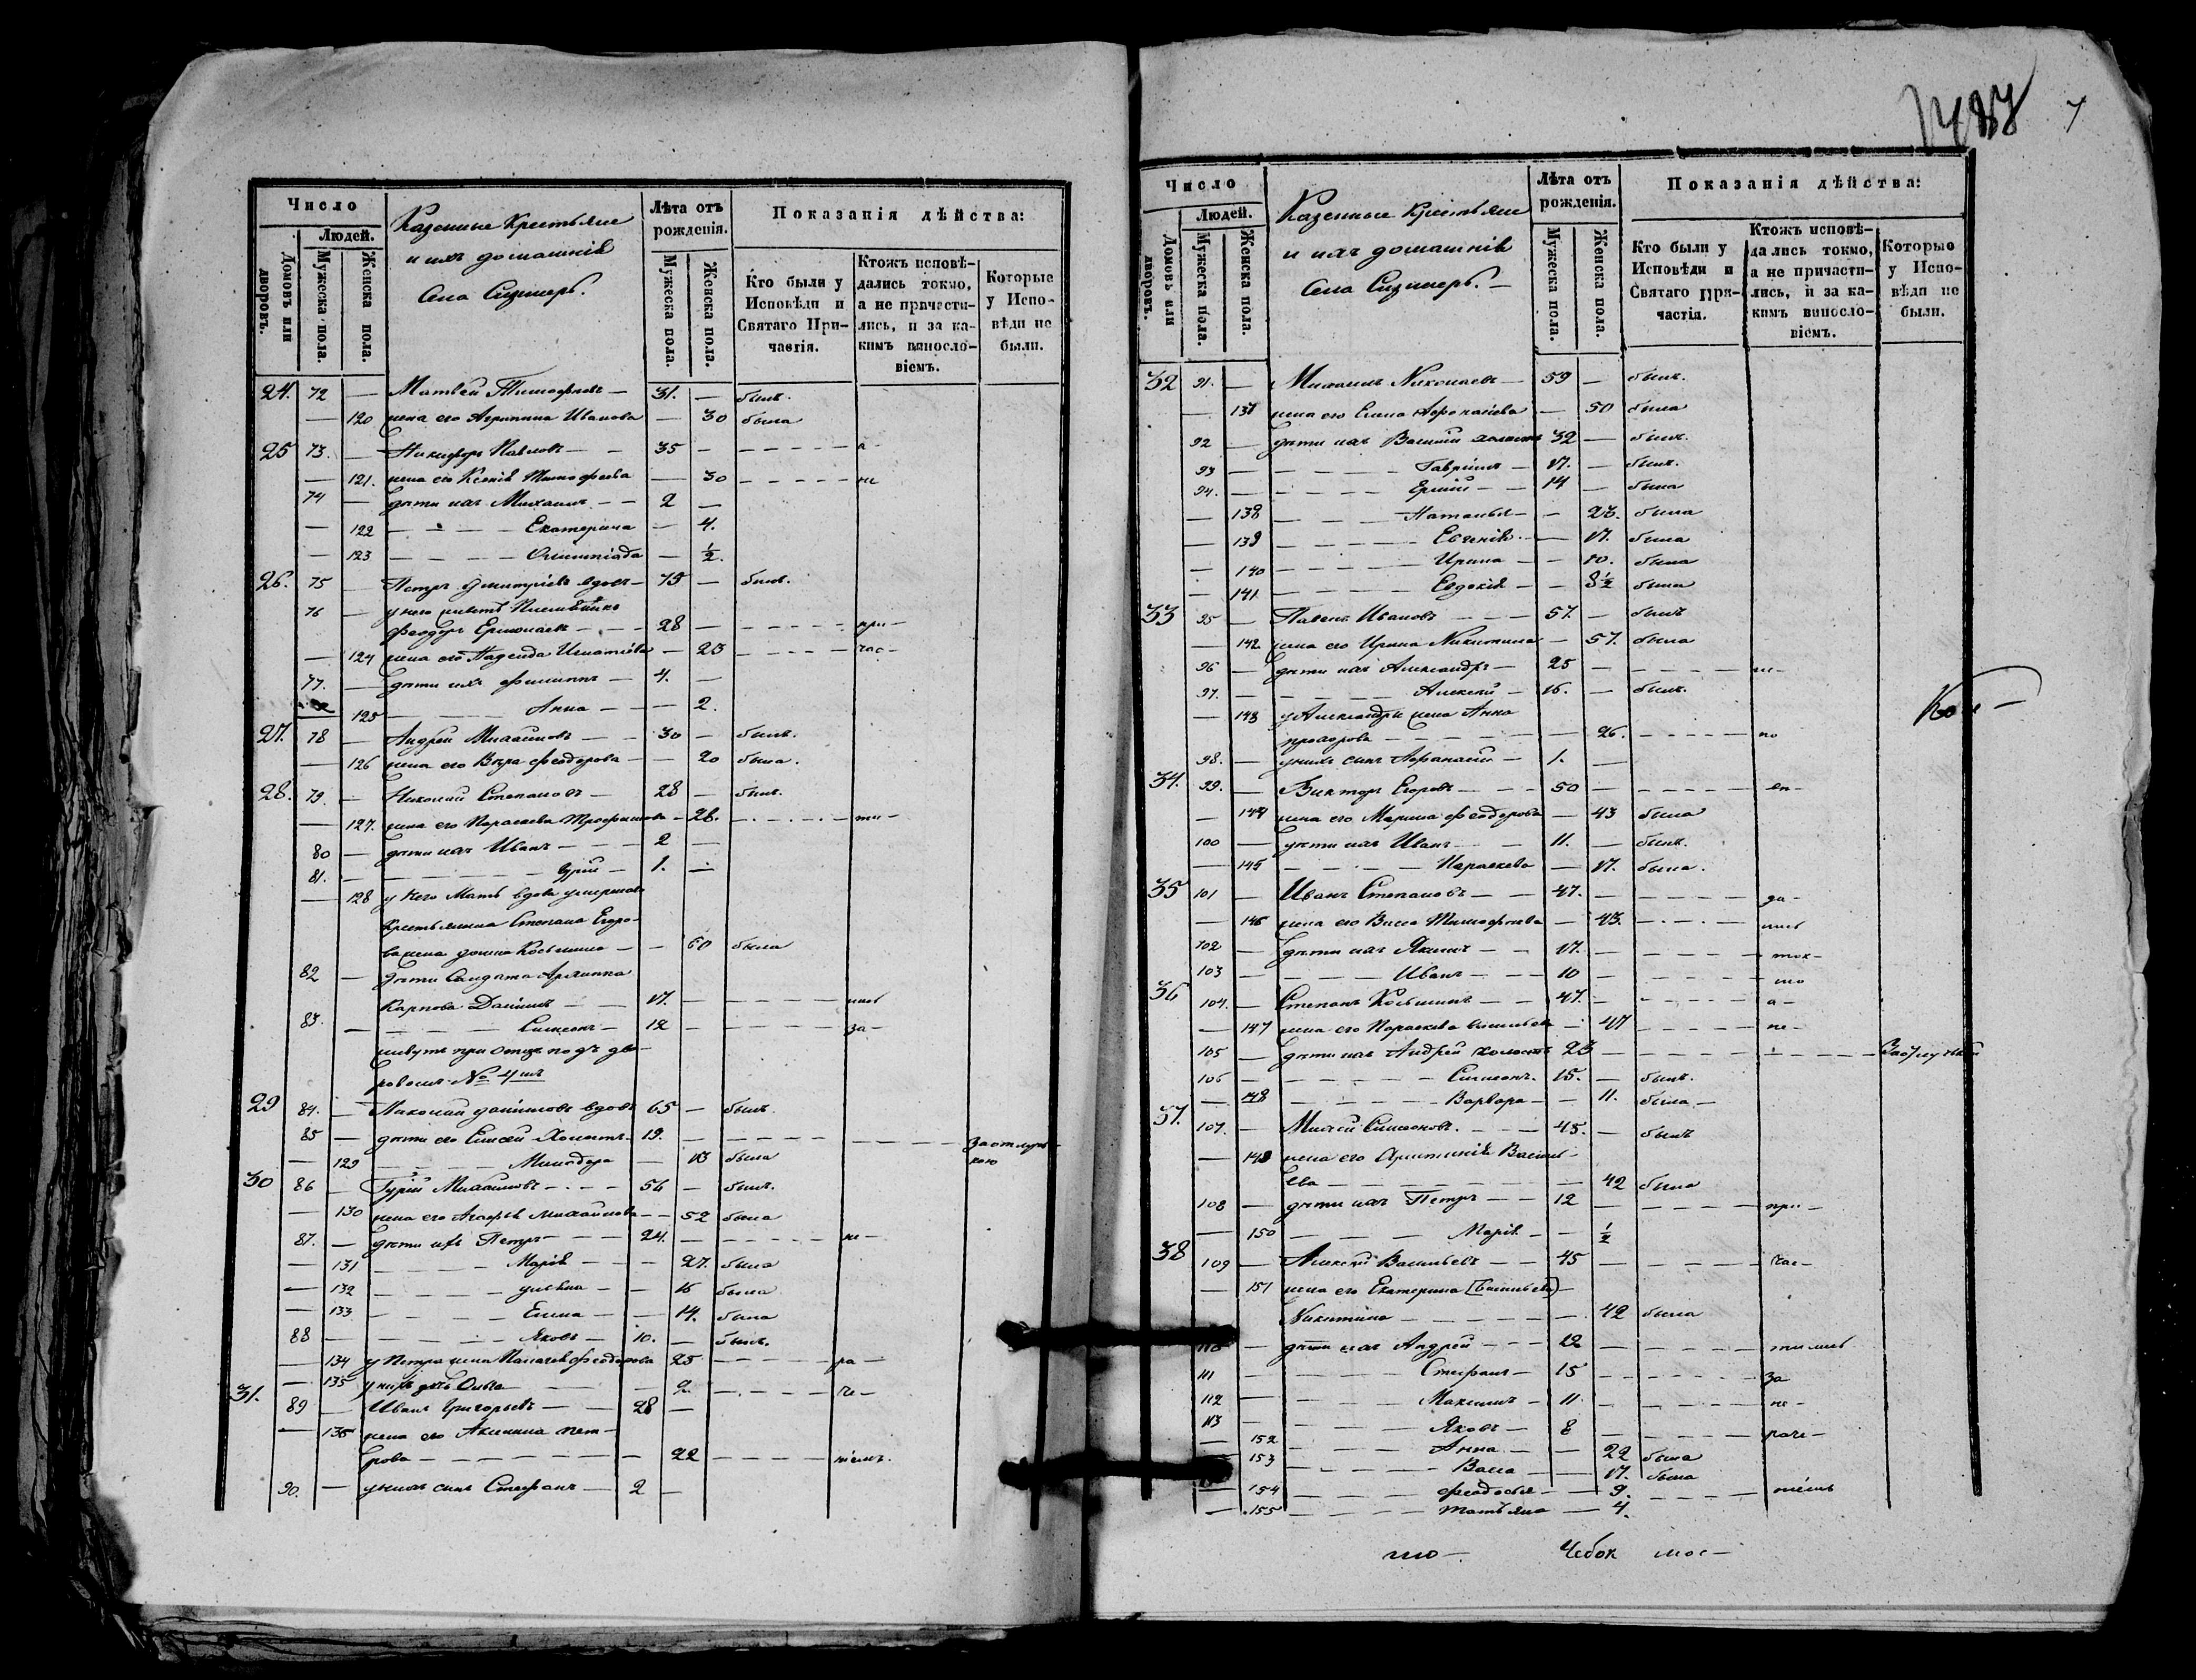 Число
Людей.
Домовъ или дворовъ.
Мужеска пола.
Женска пола.
Казенные крестьяне
и ихъ домашнiе
Села
Лѣта отъ рожденiя.
Мужеска пола.
Женска пола.
Показанiя дѣйства:
Кто были у Исповѣди и Святаго Причастiя.
Ктожъ исповѣдались токмо, а не причастились, и за какимъ винословiемъ.
Которые у Исповѣди не были.
24. 72 — Матвей Тимофеевъ — 31. — былъ.
— 120 жена его Агрипина Иванова — 30 была
25 73. — Никифоръ Павловъ — 35 — а
— 121. жена его Ксенiя Тимофеева — 30 не
74 — дѣти ихъ Михаилъ — 2 —
— 122 Екатерина — 4.
— 123 Олимпiада — ½.
26. 75 — Петръ Дмитрiевъ вдовъ — 75 — былъ.
76 — у него
Феодоръ Ермолаевъ — 28 — при-
— 124 жена его Надежда Игнатiева — 23 час-
77. — дѣти ихъ Филиппъ — 4. —
125 Анна — 2.
27. 78 — Андрей Михайловъ — 30 — былъ.
— 126 жена его Вѣра Феодорова — 20 была.
28. 79. — Николай Степановъ — 28 — былъ.
— 127. жена его Параскева Трофимова — 28. ти-
80 — дѣти ихъ Иванъ — 2 —
81. — Гурiй — 1. —
— 128 у него мать вдова умершаго
крестьянина Степана Егоро-
ва жена Козьмина — 60 была
82 — дѣти Солдата
Карпова Данiилъ — 17. — лись
83. — Симеонъ — 12 за-
живутъ при отцѣ подъ дво-
ровымъ № 4мъ
29 84. — Николай Данiиловъ вдовъ 65 — былъ.
85 — дѣти его Елисей холостъ. 19. — За отлуч-
кою
— 129 — 13 была
30 86 — Гурiй Михайловъ — 56 — былъ.
— 130 жена его Агафья Михайлова — 52 была
87. — дѣти ихъ Петръ — 24. — не-
— 131 Марiя — 27. была
— 132 Ульяна — 16 была
— 133 Елена — 14. была
88 — Яковъ — 10. — былъ.
— 134 у Петра жена Пелагея Феодорова 25 ра-
— 135 у нихъ дочь Ольга — 2 че-
31. 89 — Иванъ Григорьевъ — 28 —
— 136 жена его Аксинья Пет-
рова — 22 нiемъ.
90. — у нихъ сынъ Стефанъ — 2 —
7
Число
Людей.
Домовъ или дворовъ.
Мужеска пола.
Женска пола.
Казенные крестьяне
и ихъ домашнiе
Села
Лѣта отъ рожденiя.
Мужеска пола.
Женска пола.
Показанiя дѣйства:
Кто были у Исповѣди и Святаго Причастiя.
Ктожъ исповѣдались токмо, а не причастились, и за какимъ винословiемъ.
Которые у Исповѣди не были.
32 91. — Михаилъ Николаевъ — 59 — былъ.
— 137 жена его Елена — 50 была
92 — дѣти ихъ Василiй холостъ 32 — былъ.
93 — Гаврiилъ — 17. — былъ.
94. — 14 — была
— 138 Наталья — 23. была
— 139 Евгенiя — 17. была
— 140 Ирина — 10. была
— 141 Евдокiя — 8½ была
33 95 — Павелъ Ивановъ — 57. — былъ
— 142 жена его Ирина Никитина — 57. была
96 — дѣти ихъ Александръ — 25 —
97. — Алексей — 16. — былъ.
— 143 у Александра жена Анна
Прохорова — 26. по
98. — у нихъ сынъ Афанасiй — 1. —
34. 99. — Викторъ Егоровъ — 50 —
— 144 жена его Марина Феодорова — 43 была
100 — дѣти ихъ Иванъ — 11. — былъ.
— 145 Параскева — 17. была.
35 101 — Иванъ Степановъ — 47. — да-
— 146 жена его Васса Тимофеева — 43. лись
102 — дѣти ихъ Якимъ — 17. — ток-
103 — Иванъ — 10 — мо
36 104. — Степанъ Козьминъ — 47. — а-
— 147 жена его Параскева — 47 не-
105 — дѣти ихъ Андрей холостъ 23 —
106 — Симеонъ. 15. — былъ.
— 148 Варвара — 11. была —
37. 107. — Симеоновъ. — 45. — былъ
— 149 жена его Василь-
ева — 42 была
108 — дѣти ихъ Петръ — 12 при-
— 150 Марiя — ½
38 109 — Алексей Васильевъ — 45 — час-
— 151 жена его Екатерина (Васильева)
Никитина — 42 была
110 — дѣти ихъ Андрей — тились
111 — Стефанъ — 15 за
112 — Максимъ — 11 не-
113 — Яковъ — 8 раче-
— 152 Анна — 22 была
— 153 Васса — 17. была
— 154 Феодосья — 9. нiемъ
— 155 Татьяна — 4.